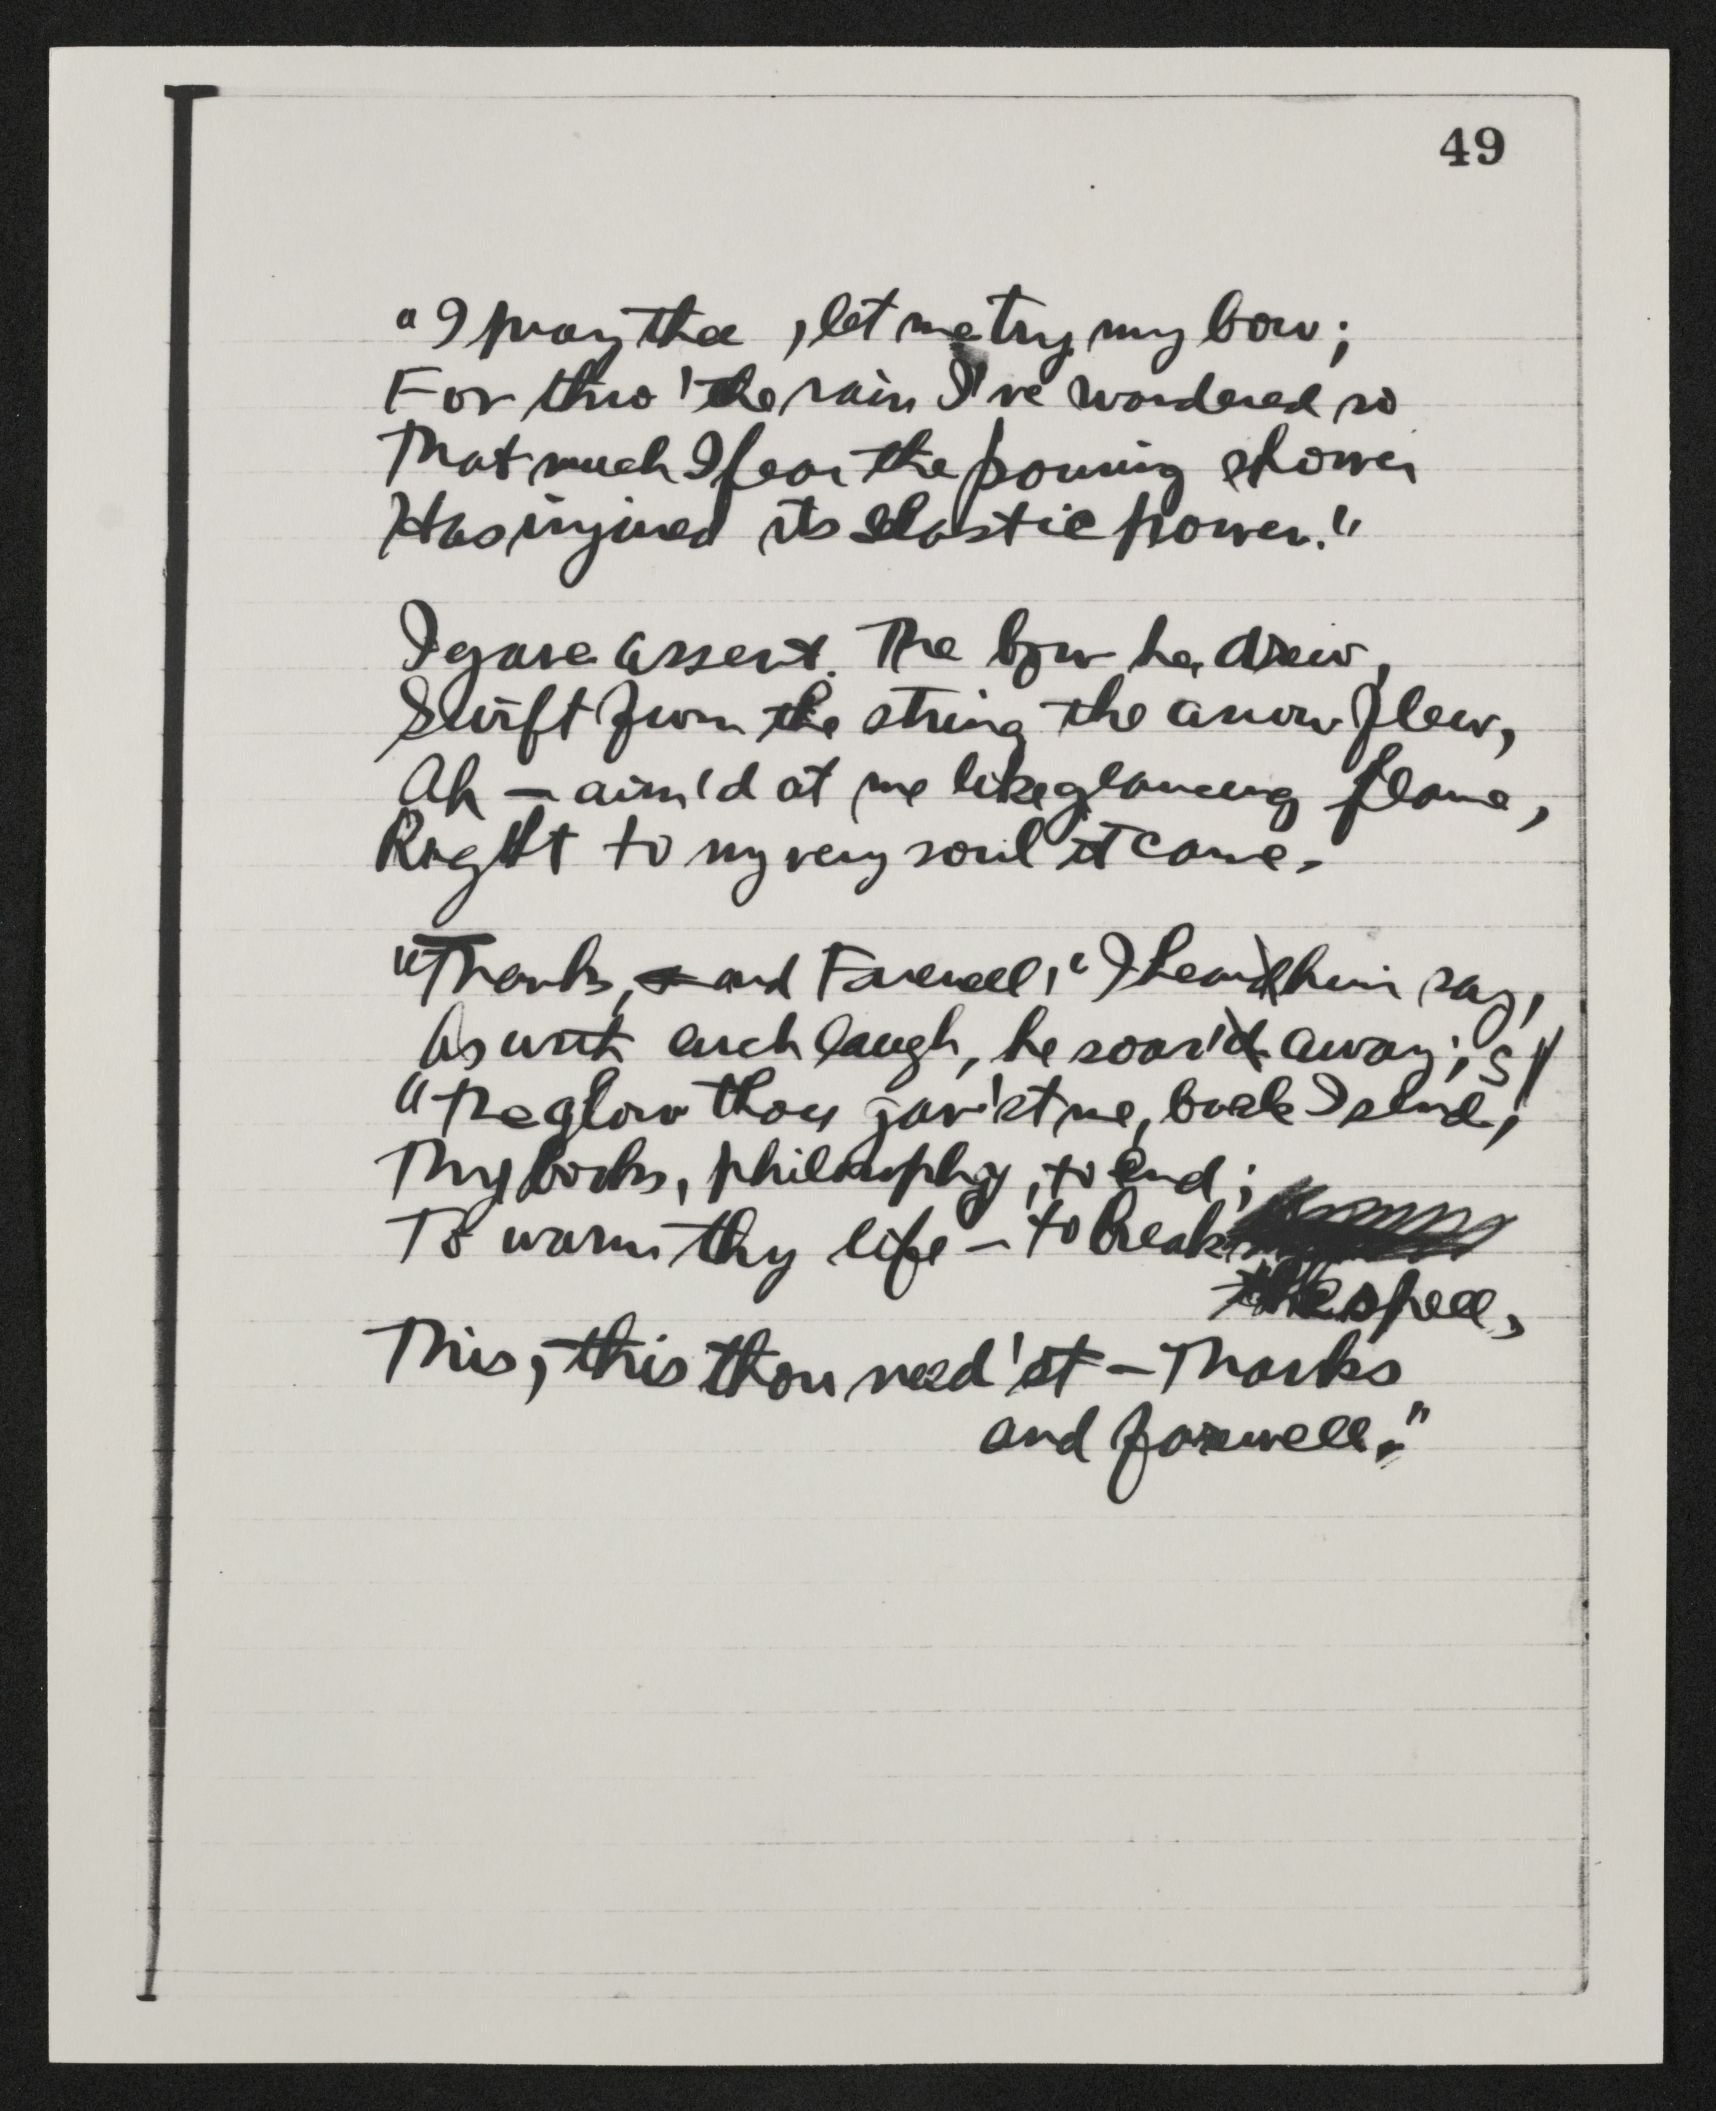 49
"I pray thee, let me try my bow;
For thro' the rain I've wandered so
That much I fear the pouring shower
Has injured its elastic power."
I gave assent. The bow he drew,
Swift from the string the arrow flew,
Ah — aim'd at me like glancing flame,
Right to my very soul it came.
"Thanks, and Farewell," I heard him say,
As with arch laugh, he soar'd away;
"The glow thou gav'st me, back I send,
Thy books, philosophy, to end;
To warm thy life — to break
the spell,
This, this thou need'st — Thanks
and farewell."